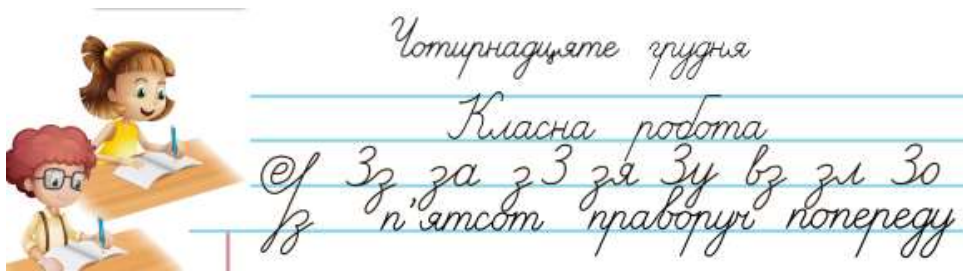 Чотирнадцяте грудня
Класна робота
Зз за зЗ зя Зу вз зл Зо
п'ятсот праворуч попереду